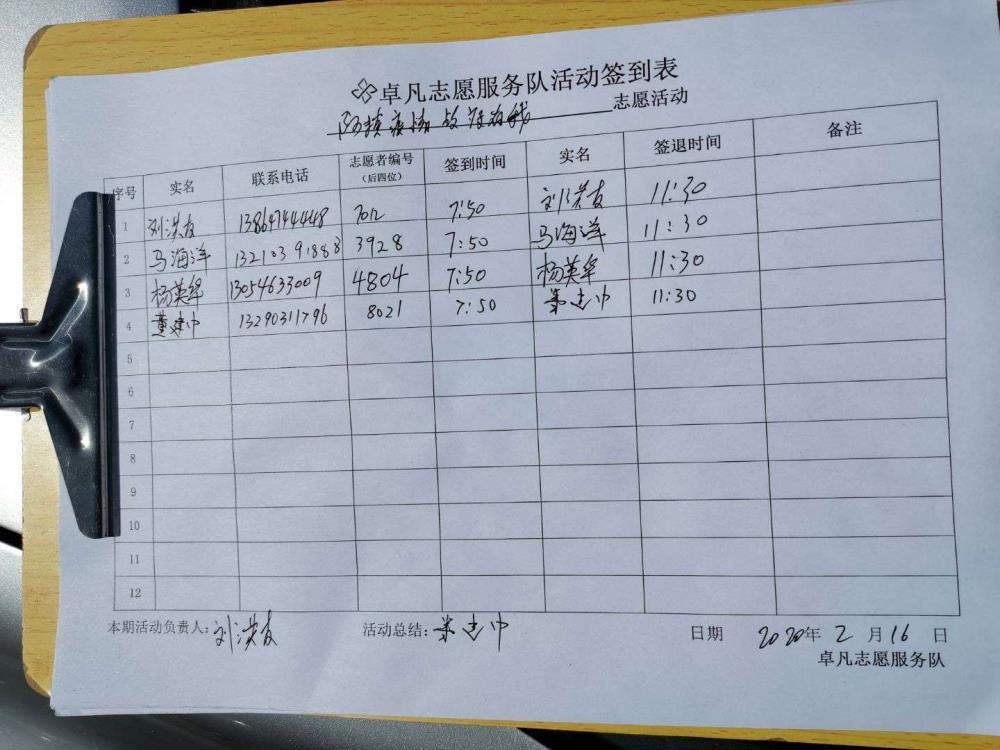 卓凡志愿服务队活动签到表
防镇疫情 志愿活动
序号 实名 联系电话 志愿者编号（后四位） 签到时间 实名 签退时间 备注
1 刘洪友 13864744448 7012 7:50 刘洪友 11:30
2 马海洋 13210391888 3928 7:50 马海洋 11:30
3 杨英华 13054633009 4804 7:50 杨英华 11:30
4 董建中 13290311796 8021 7:50 董建中 11:30
5
6
7
8
9
10
11
12
本期活动负责人：刘洪友 活动总结：董建中 日期 2020年2月16日
卓凡志愿服务队